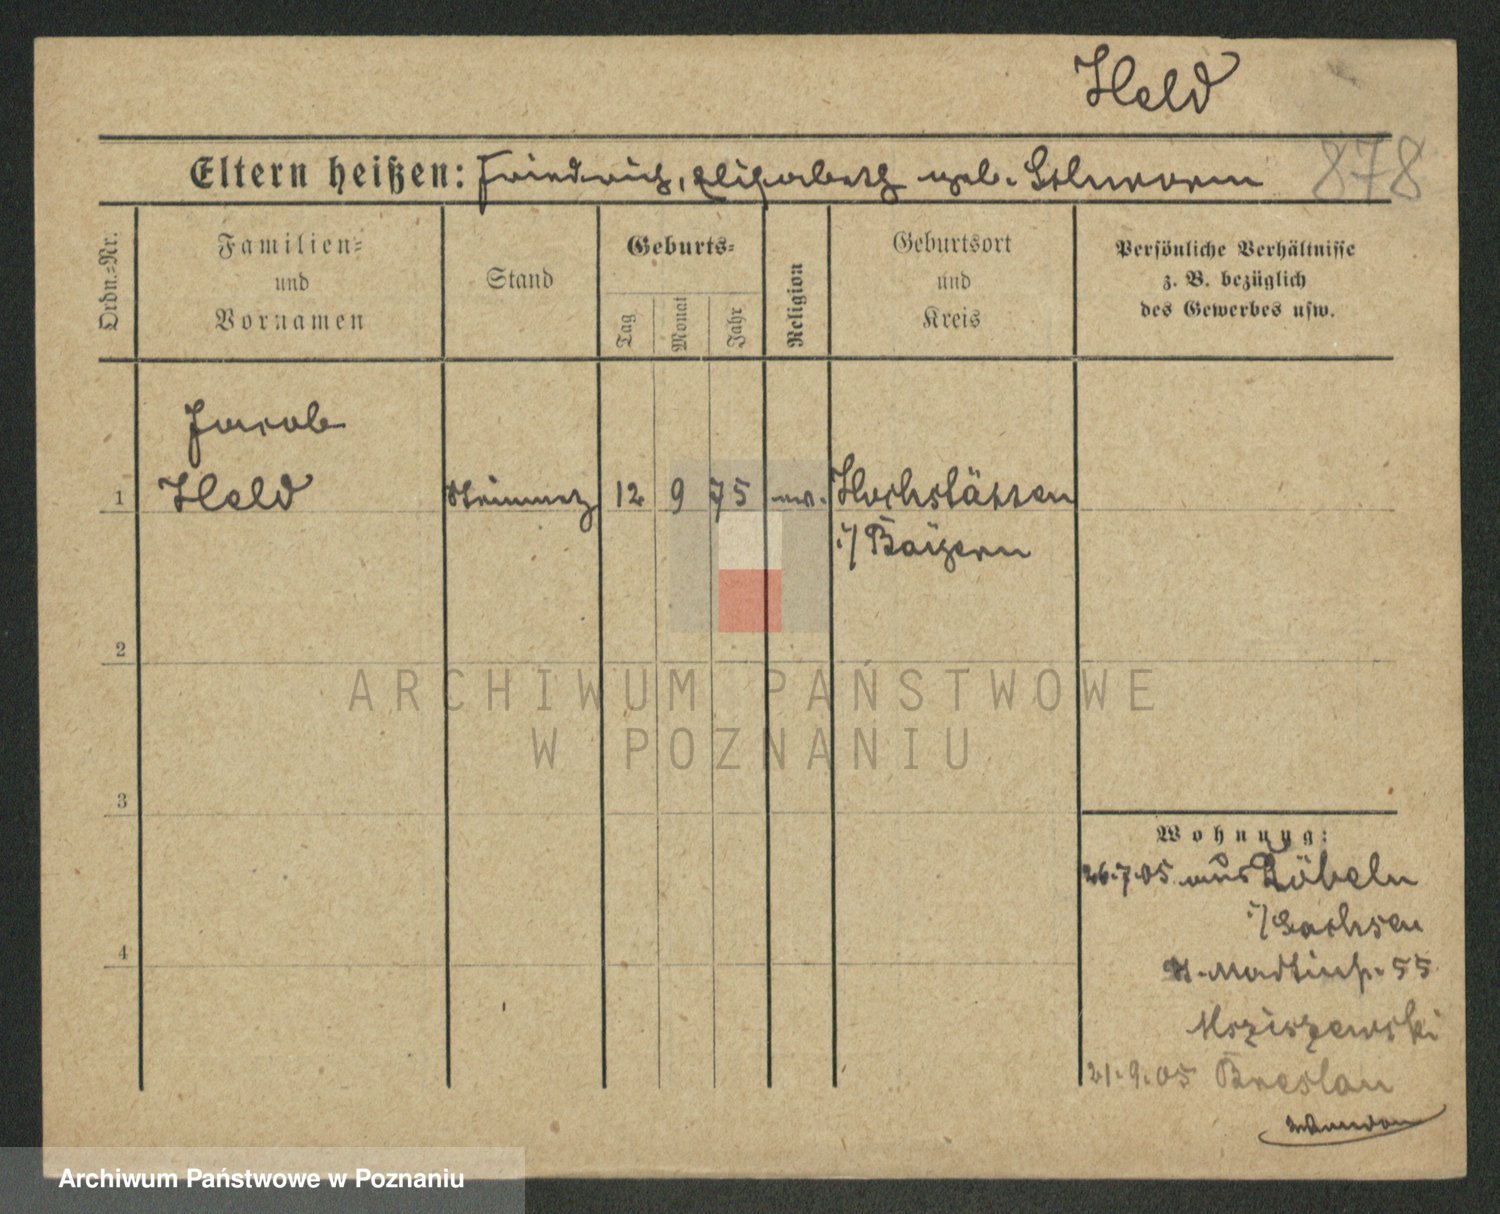 Held
878
Eltern heißen: Friedrich, Elisabeth geb. Schworm
Ordn.-Nr.
Familien-
und
Vornamen
Stand
Geburts-
Tag
Monat
Jahr
Religion
Geburtsort
und
Kreis
Persönliche Verhältnisse
z. B. bezüglich
des Gewerbes usw.
Jacob
1 Held Steinmetz 12 9 75 ev. Hochstätten
i/ Baÿern
2
ARCHIWUM PAŃSTWOWE
W POZNANIU
3
Wohnung:
26.7.05 aus Döbeln
i/ Sachsen
4
55
21.9.05 Breslau
Archiwum Państwowe w Poznaniu